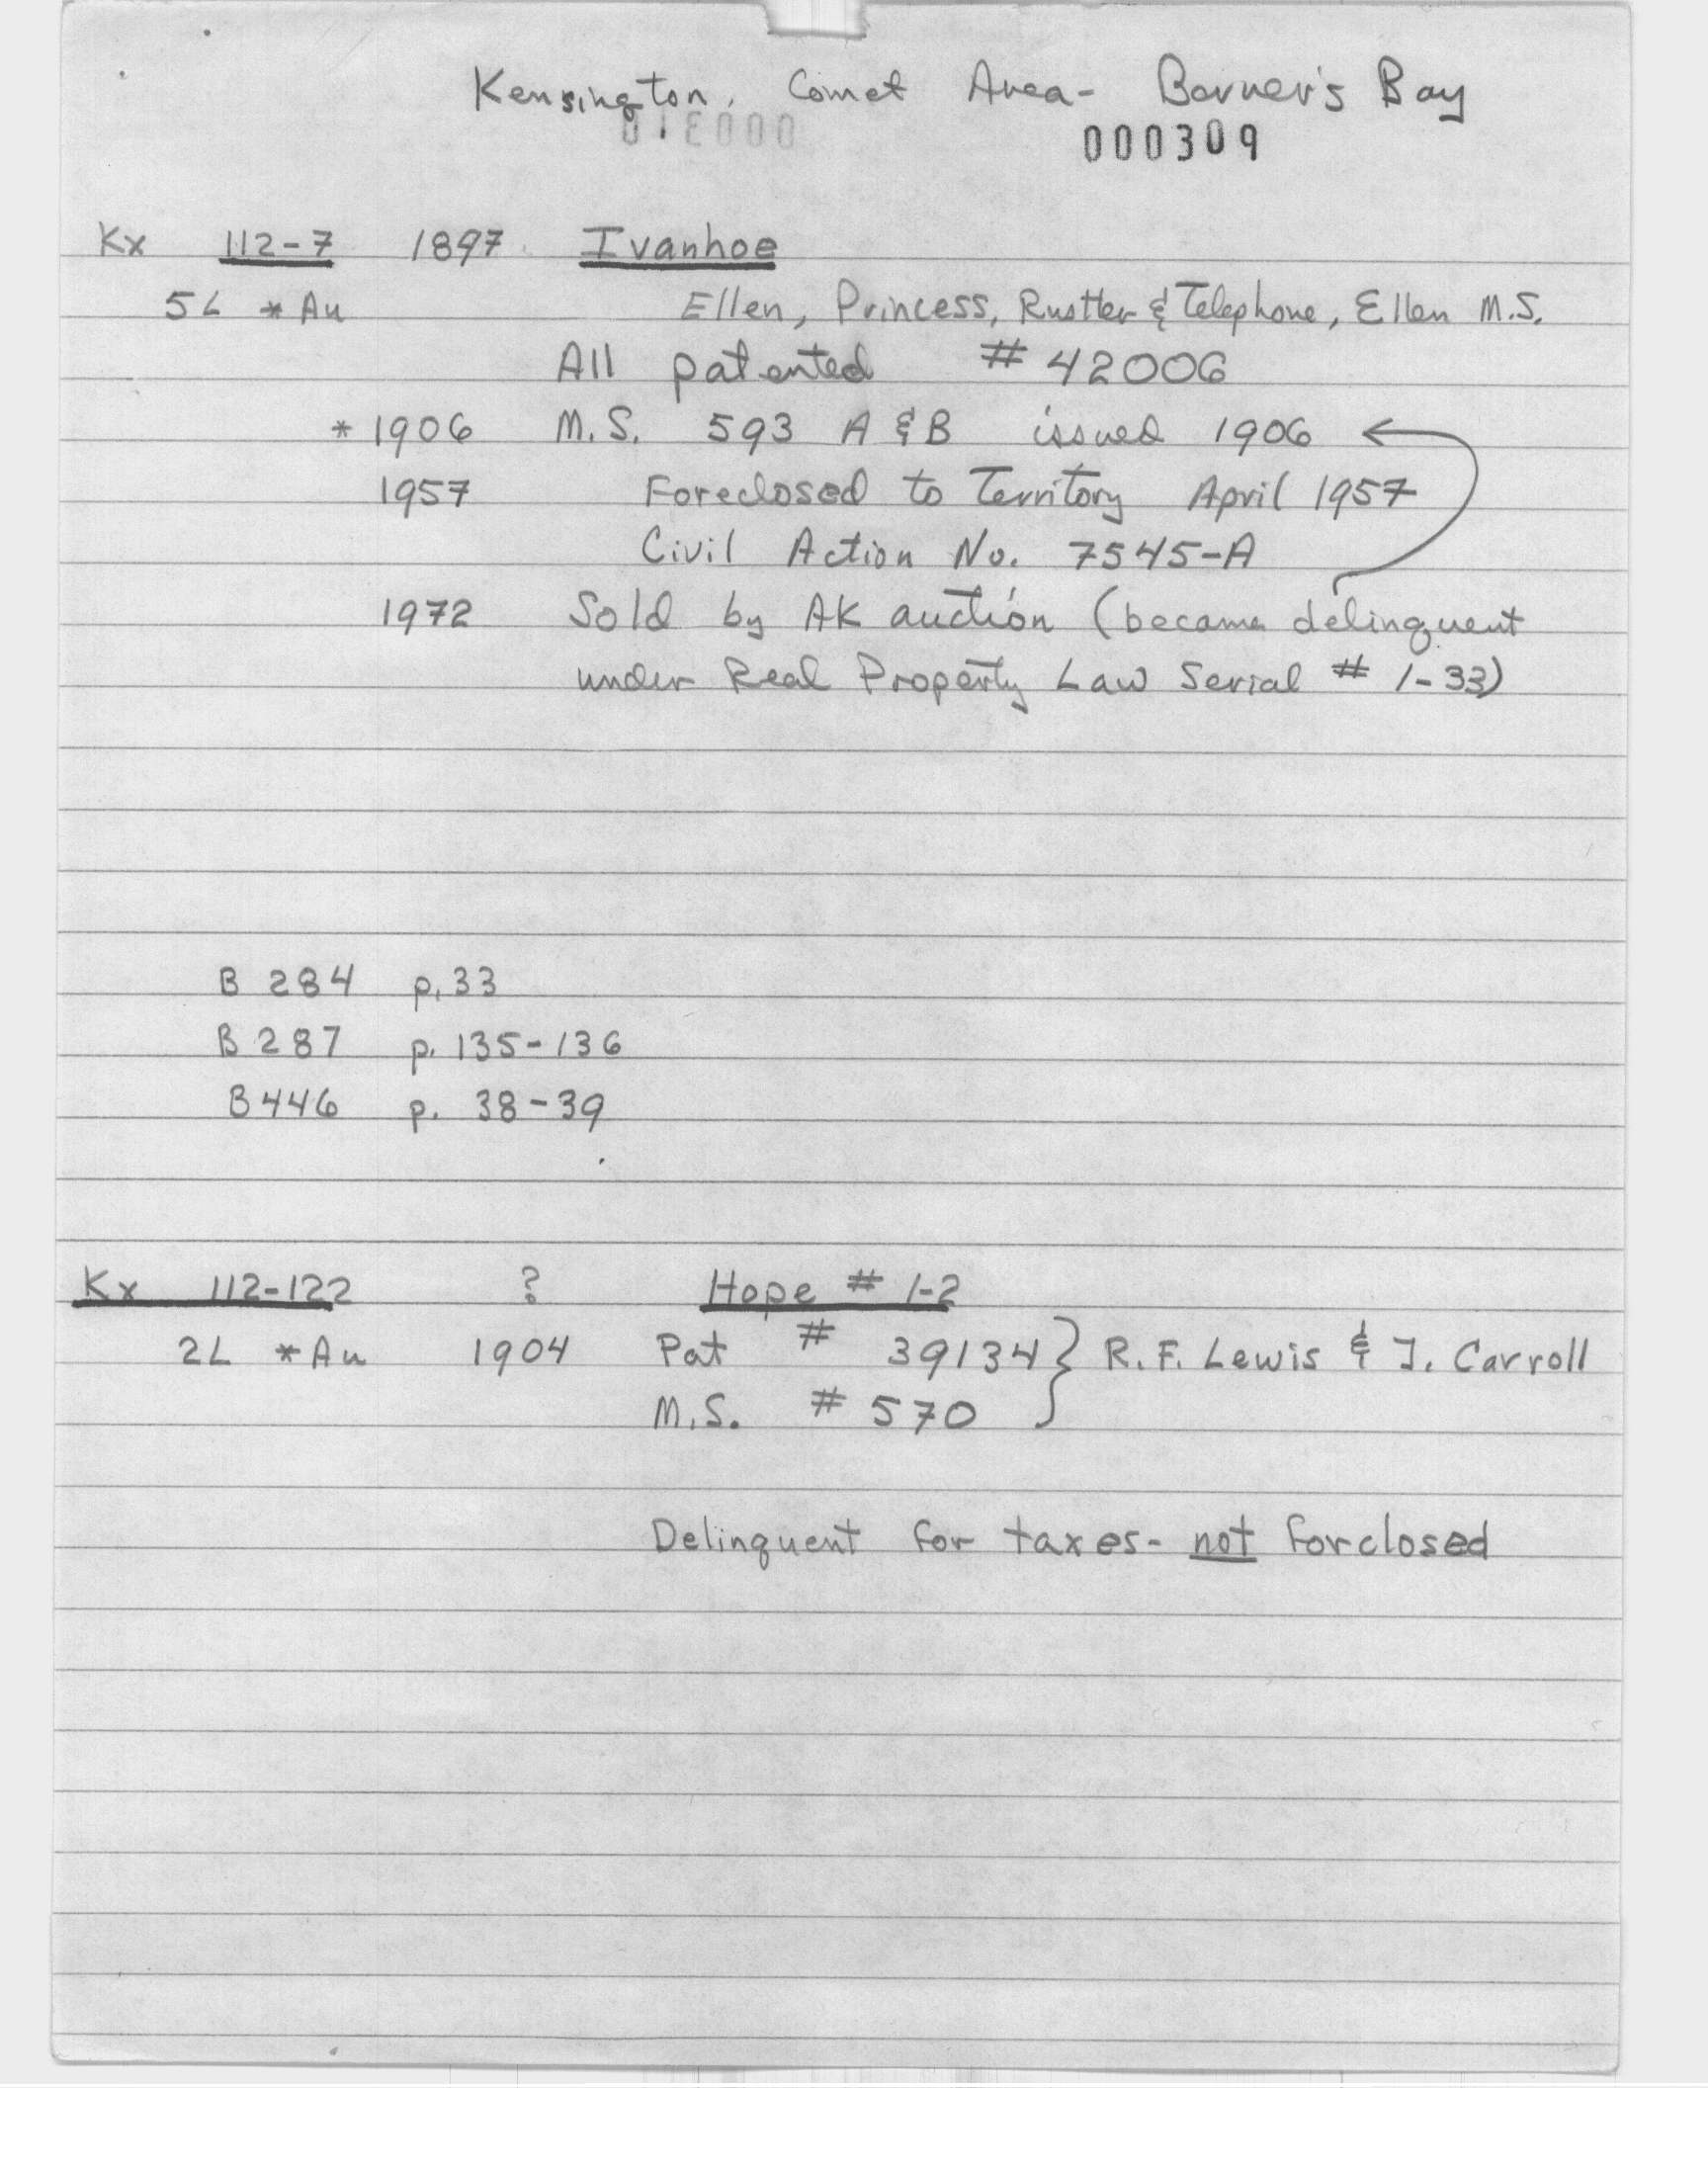 Kensington, Comet Area- Berner's Bay
000309
Kx 112-7 1897 Ivanhoe
5L *Au Ellen, Princess, Rustler & Telephone, Ellen M.S.
All patented # 42006
*1906 M.S. 593 A & B issued 1906
1957 Foreclosed to Territory April 1957
Civil Action No. 7545-A
1972 Sold by AK auction (became delinquent
under Real Property Law Serial # 1-33)
B 284 p. 33
B 287 p. 135-136
B446 p. 38-39
Kx 112-122 ? Hope # 1-2
2L *Au 1904 Pat # 39134 } R.F. Lewis & J. Carroll
M.S. # 570
Delinquent for taxes- not forclosed